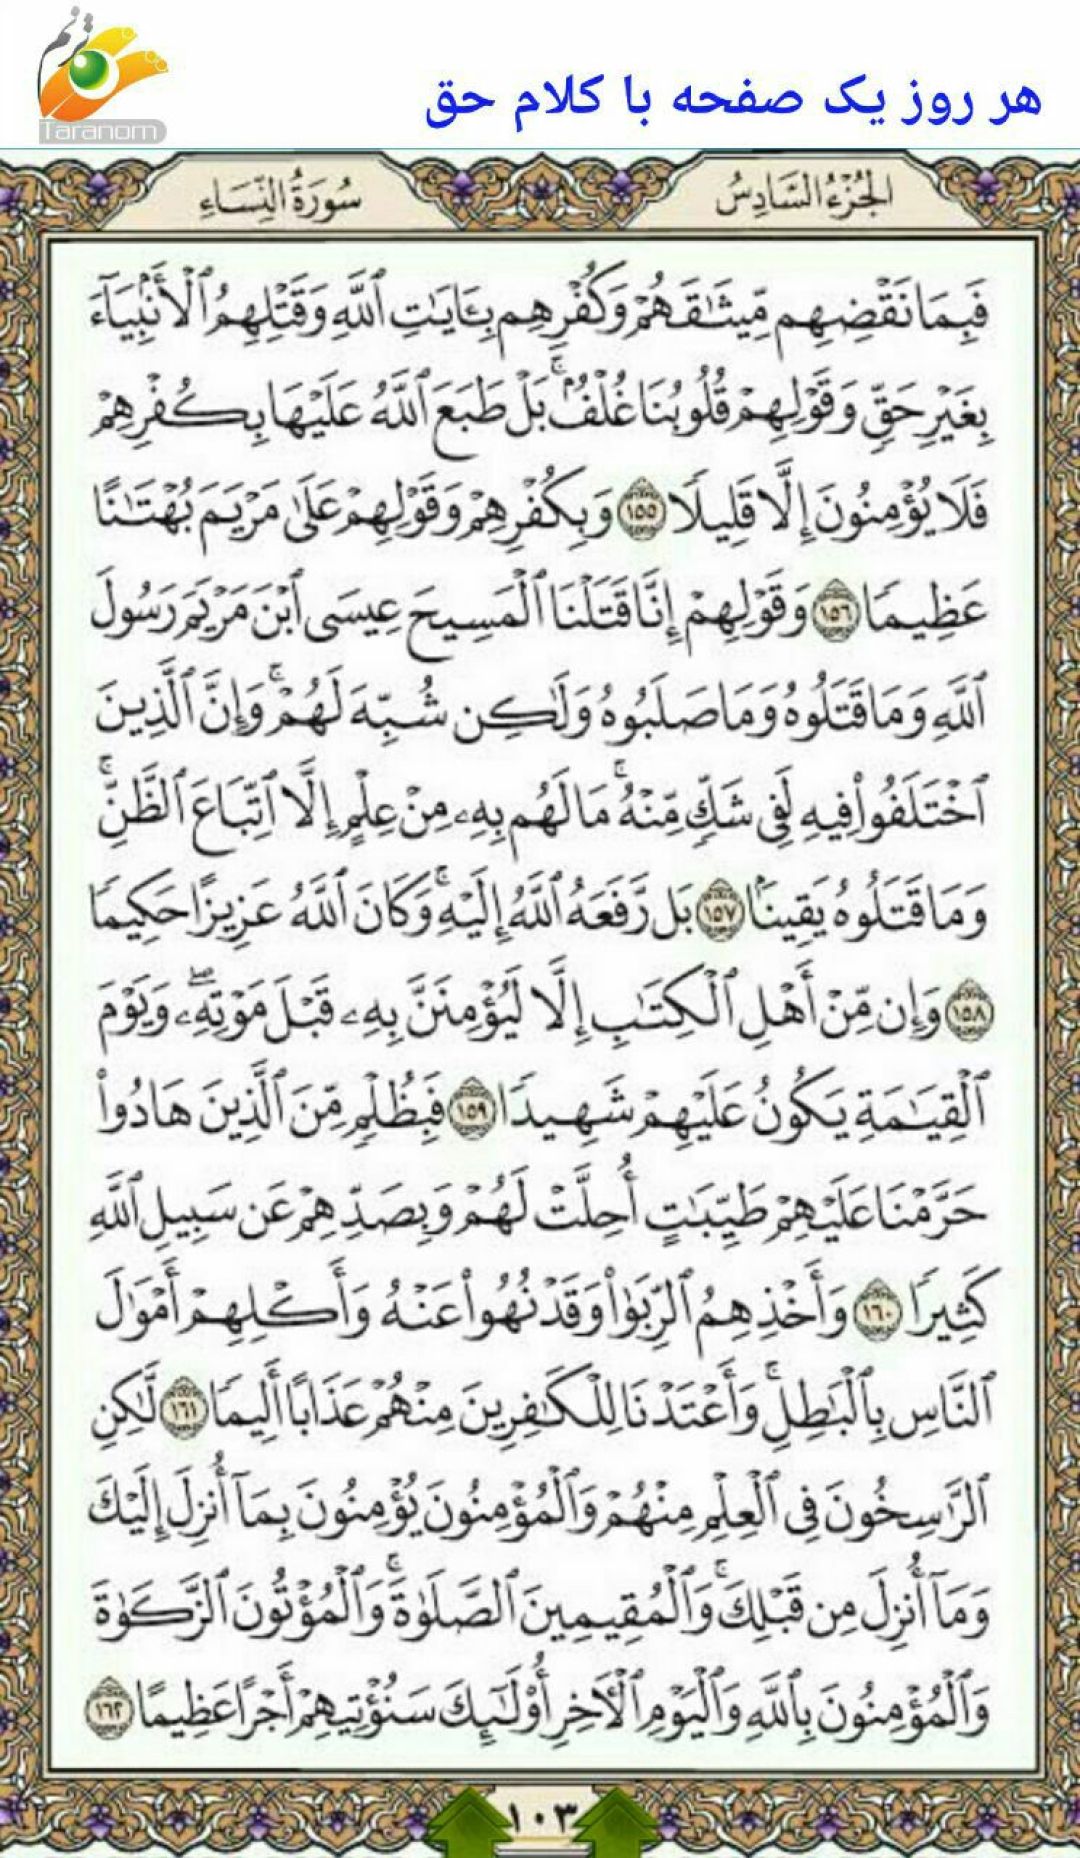 ترنم
Taranom
هر روز یک صفحه با کلام حق
الجُزْءُ السَّادِسُ
سُورَةُ النِّسَاءِ
فَبِمَا نَقْضِهِم مِّيثَٰقَهُمْ وَكُفْرِهِم بِـَٔايَٰتِ ٱللَّهِ وَقَتْلِهِمُ ٱلْأَنۢبِيَآءَ
بِغَيْرِ حَقٍّ وَقَوْلِهِمْ قُلُوبُنَا غُلْفٌۢ ۚ بَلْ طَبَعَ ٱللَّهُ عَلَيْهَا بِكُفْرِهِمْ
فَلَا يُؤْمِنُونَ إِلَّا قَلِيلًا ١٥٥ وَبِكُفْرِهِمْ وَقَوْلِهِمْ عَلَىٰ مَرْيَمَ بُهْتَٰنًا
عَظِيمًا ١٥٦ وَقَوْلِهِمْ إِنَّا قَتَلْنَا ٱلْمَسِيحَ عِيسَى ٱبْنَ مَرْيَمَ رَسُولَ
ٱللَّهِ وَمَا قَتَلُوهُ وَمَا صَلَبُوهُ وَلَٰكِن شُبِّهَ لَهُمْ ۚ وَإِنَّ ٱلَّذِينَ
ٱخْتَلَفُوا۟ فِيهِ لَفِى شَكٍّ مِّنْهُ ۚ مَا لَهُم بِهِۦ مِنْ عِلْمٍ إِلَّا ٱتِّبَاعَ ٱلظَّنِّ ۚ
وَمَا قَتَلُوهُ يَقِينًۢا ١٥٧ بَل رَّفَعَهُ ٱللَّهُ إِلَيْهِ ۚ وَكَانَ ٱللَّهُ عَزِيزًا حَكِيمًا
١٥٨ وَإِن مِّنْ أَهْلِ ٱلْكِتَٰبِ إِلَّا لَيُؤْمِنَنَّ بِهِۦ قَبْلَ مَوْتِهِۦ ۖ وَيَوْمَ
ٱلْقِيَٰمَةِ يَكُونُ عَلَيْهِمْ شَهِيدًا ١٥٩ فَبِظُلْمٍ مِّنَ ٱلَّذِينَ هَادُوا۟
حَرَّمْنَا عَلَيْهِمْ طَيِّبَٰتٍ أُحِلَّتْ لَهُمْ وَبِصَدِّهِمْ عَن سَبِيلِ ٱللَّهِ
كَثِيرًا ١٦٠ وَأَخْذِهِمُ ٱلرِّبَوٰا۟ وَقَدْ نُهُوا۟ عَنْهُ وَأَكْلِهِمْ أَمْوَٰلَ
ٱلنَّاسِ بِٱلْبَٰطِلِ ۚ وَأَعْتَدْنَا لِلْكَٰفِرِينَ مِنْهُمْ عَذَابًا أَلِيمًا ١٦١ لَّٰكِنِ
ٱلرَّٰسِخُونَ فِى ٱلْعِلْمِ مِنْهُمْ وَٱلْمُؤْمِنُونَ يُؤْمِنُونَ بِمَآ أُنزِلَ إِلَيْكَ
وَمَآ أُنزِلَ مِن قَبْلِكَ ۚ وَٱلْمُقِيمِينَ ٱلصَّلَوٰةَ ۚ وَٱلْمُؤْتُونَ ٱلزَّكَوٰةَ
وَٱلْمُؤْمِنُونَ بِٱللَّهِ وَٱلْيَوْمِ ٱلْءَاخِرِ أُو۟لَٰٓئِكَ سَنُؤْتِيهِمْ أَجْرًا عَظِيمًا ١٦٢
١٠٣